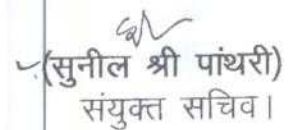 (सुनील श्री पांथरी)
संयुक्त सचिव।